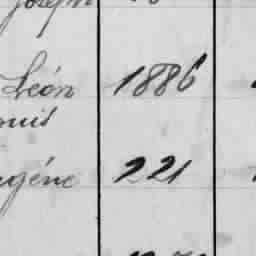 Joseph
Léon 1886
ouis
ugéne 221